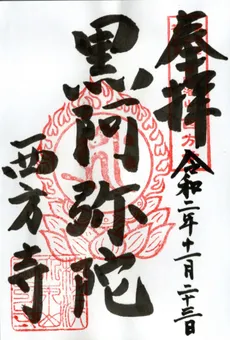 奉拝
令和二年十一月二十三日
黒阿弥陀
西方寺